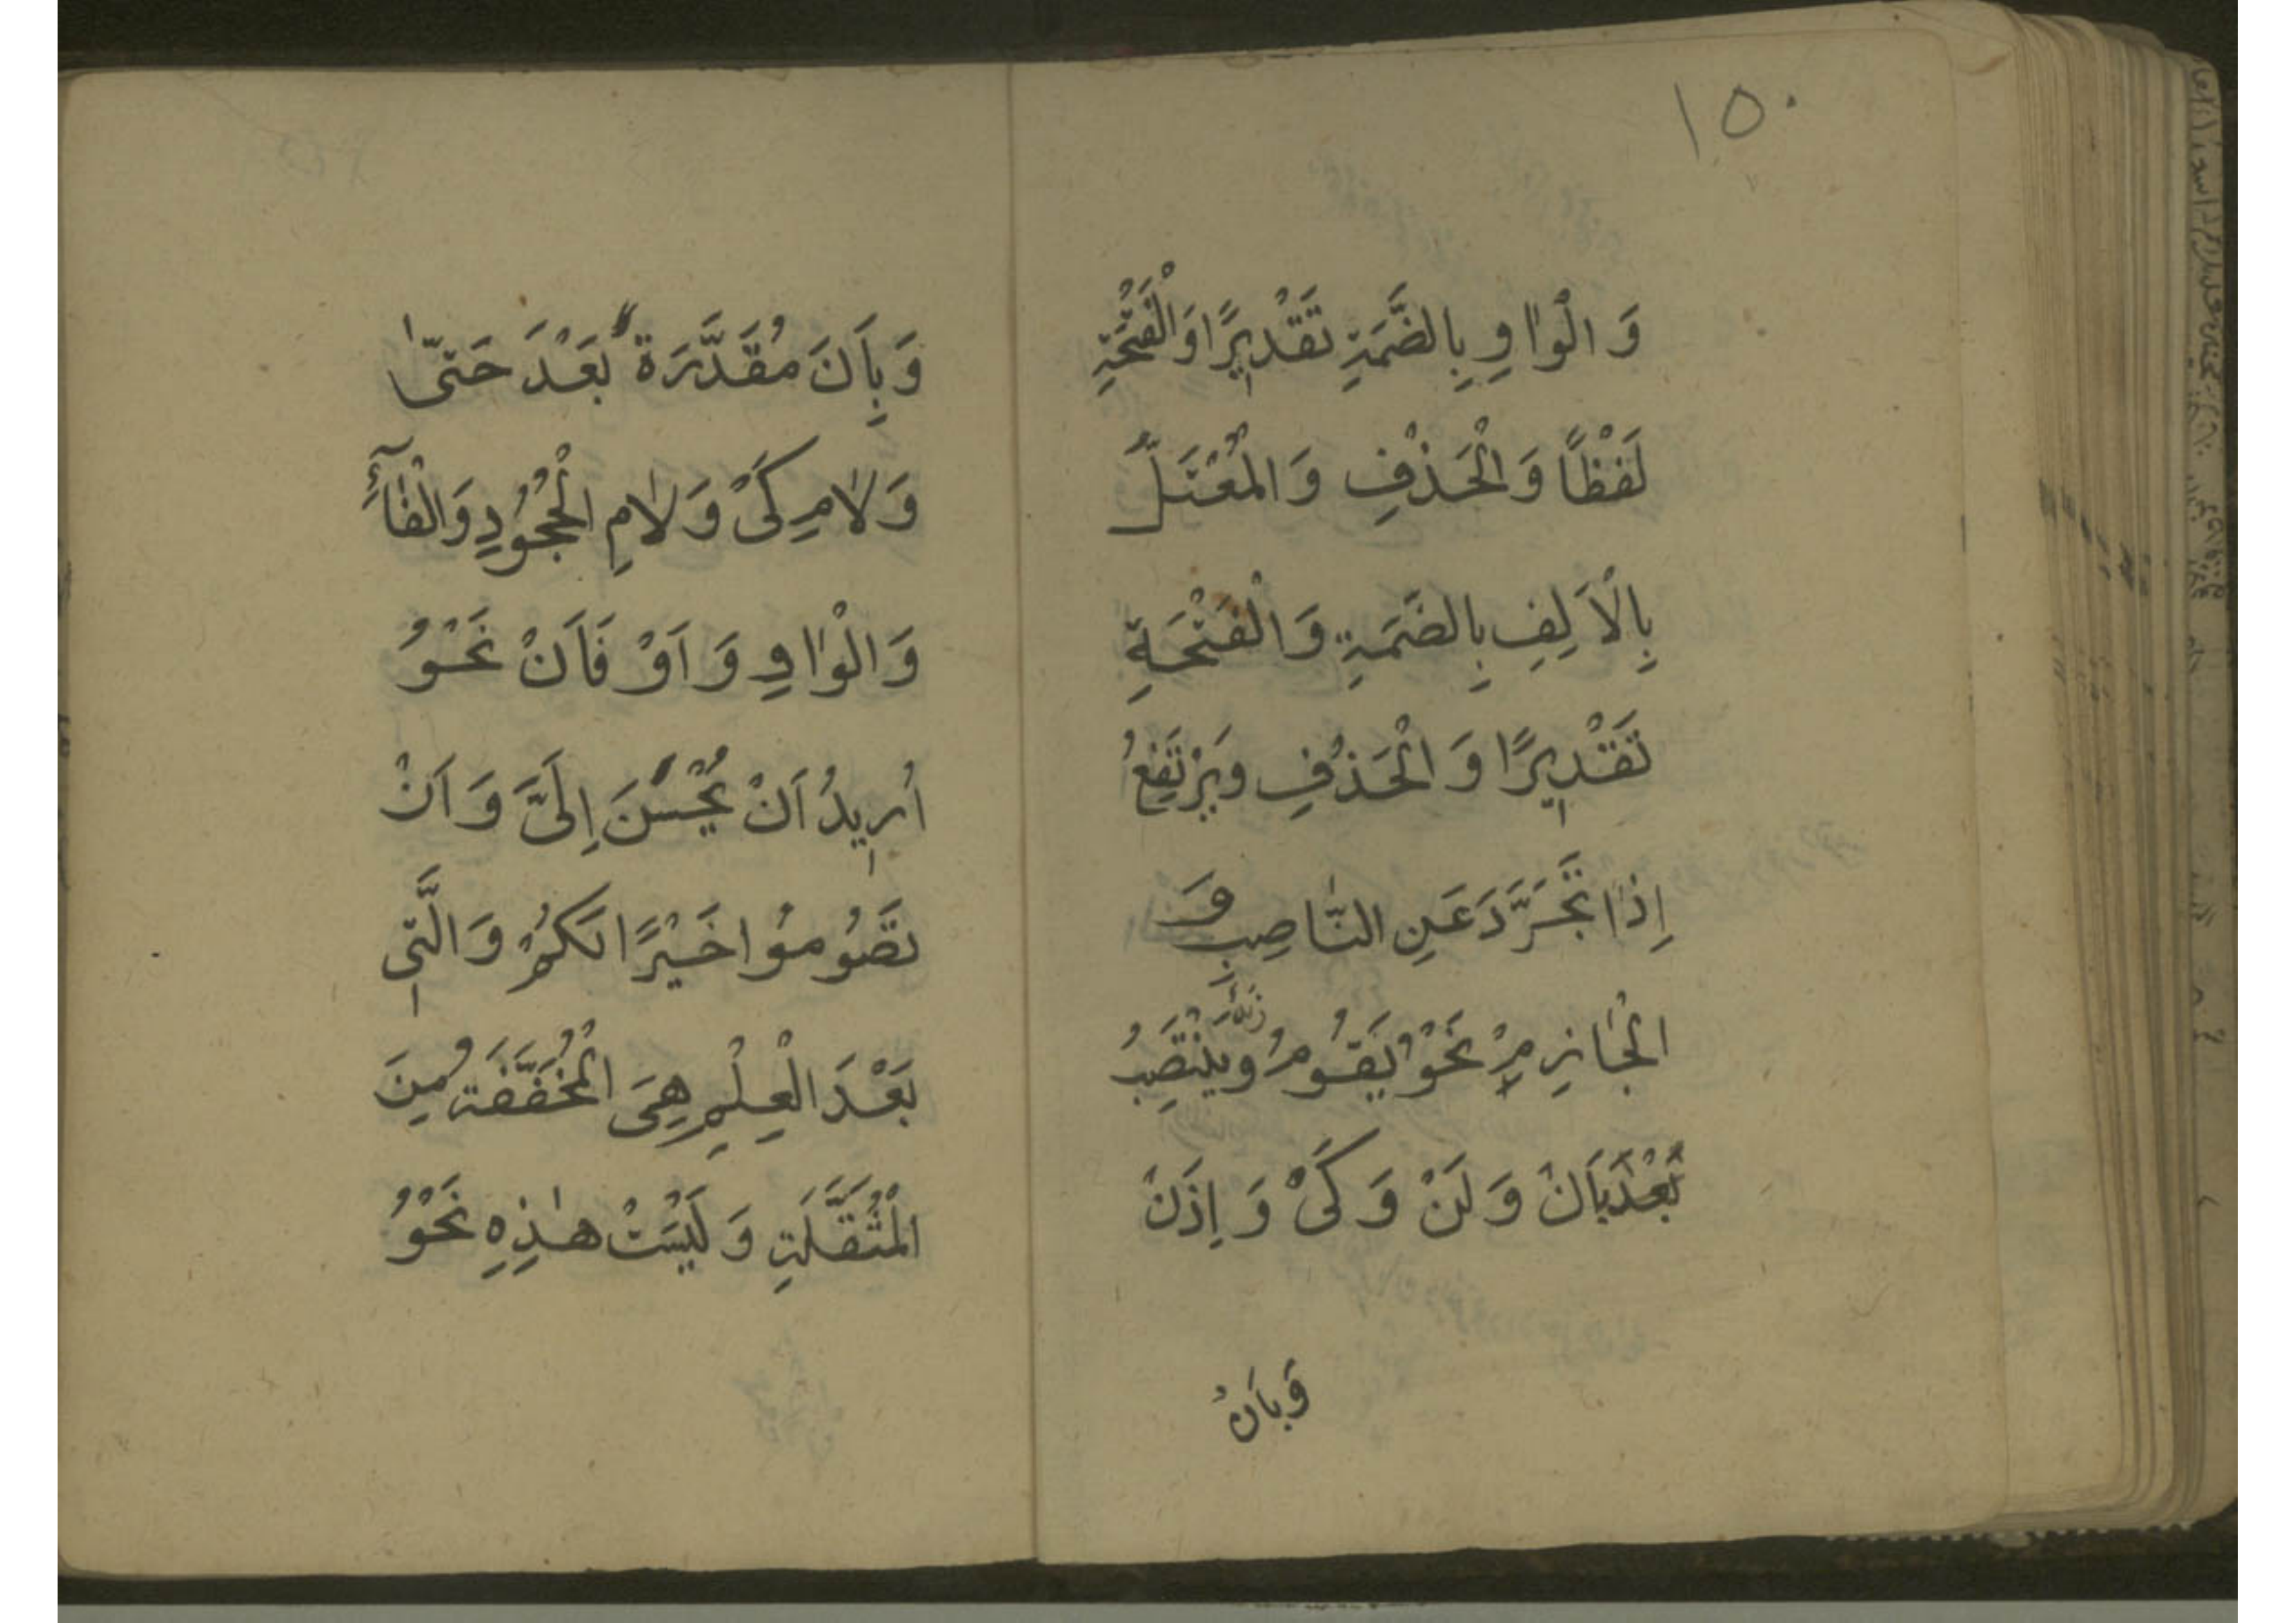 ١٥٠
وَالْوٰاوِ بِالضَّمَةِ تَقْدِيرًا وَالْفَتْحَةِ
لَفْظًا وَالْحَذْفِ وَالْمُعْتَلُّ
بِالْاَلِفِ بِالضَمَةِ وَالْفَتْحَةِ
تَقْدِيرًا وَالْحَذْفِ وَيَرْتَفِعُ
اِذٰا تَجَرَّدَ عَنِ النّٰاصِبِ وَ
الْجٰازِمِ نَحْوُ يَقُومُ وَيَنْتَصِبُ
بَاَنْ وَلَنْ وَكَىْ وَاِذَنْ
وَبِاَنْ
وَبِاَنَ مُقَدَّرَةً بَعْدَ حَتىّٰ
وَلٰامِ كَىْ وَلٰامِ الْجُحُودِ وَالْفٰآءِ
وَالْوٰاوِ وَاَوْ فَاَنْ نَحْوُ
اُرِيدُ اَنْ يُحْسِنَ اِلَىَّ وَاَنْ
تَصُومُوا خَيْرًا لَكُمْ وَالَّتِى
بَعْدَ الْعِلْمِ هِىَ الْمُخَفَّفَةُ مِنَ
الْمُثَقَّلَةِ وَلَيْسَتْ هٰذِهِ نَحْوُ